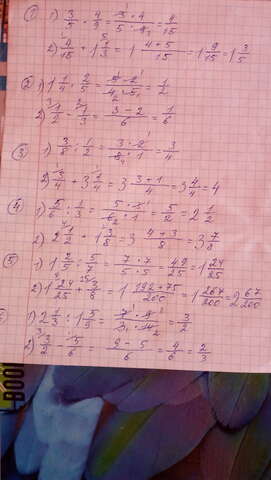 ① 1) 3/5 · 4/9 = 3·4/5·9 = 4/15
2) 4/15 + 1 1/3 = 1 4+5/15 = 1 9/15 = 1 3/5
② 1) 1 1/4 · 2/5 = 5·2/4·5 = 1/2
2) 1/2 - 1/3 = 3-2/6 = 1/6
③ 1) 3/8 : 1/2 = 3·2/8·1 = 3/4
2) 3/4 + 3 1/4 = 3 3+1/4 = 3 4/4 = 4
④ 1) 5/6 : 1/3 = 5·3/6·1 = 5/2 = 2 1/2
2) 2 1/2 + 1 3/8 = 3 4+3/8 = 3 7/8
⑤ 1) 1 2/5 : 5/7 = 7·7/5·5 = 49/25 = 1 24/25
2) 1 24/25 + 3/8 = 1 192+75/200 = 1 267/200 = 2 67/200
1) 2 1/3 : 1 5/9 = 7·9/3·14 = 3/2
2) 3/2 - 5/6 = 9-5/6 = 4/6 = 2/3